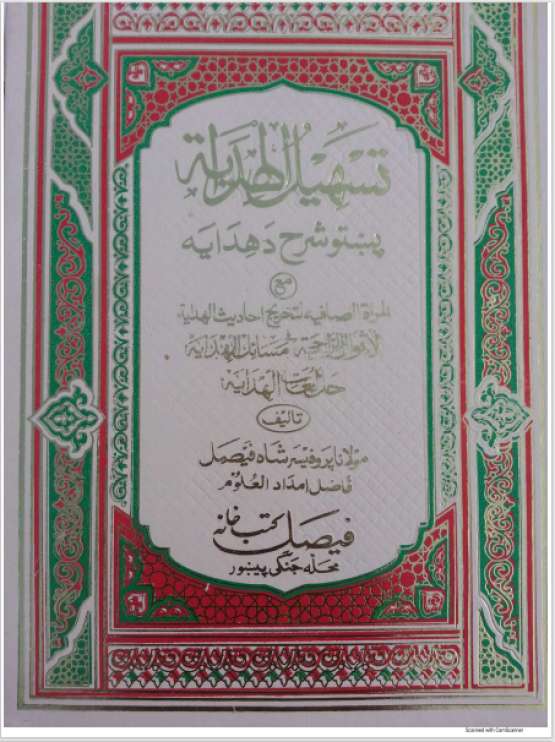 تسهیل الهدایة
پښتو شرح د هدایه
مع
المرأة الصافیه لتخریج احادیث الهدایة
الاقوال الراجحة فی مسائل الهدایة
حل لغات الهدایة
تالیف
مولانا پروفیسر شاه فیصل
فاضل امداد العلوم
فیصل کتب خانه
محله جنگی پیښور
Scanned with CamScanner